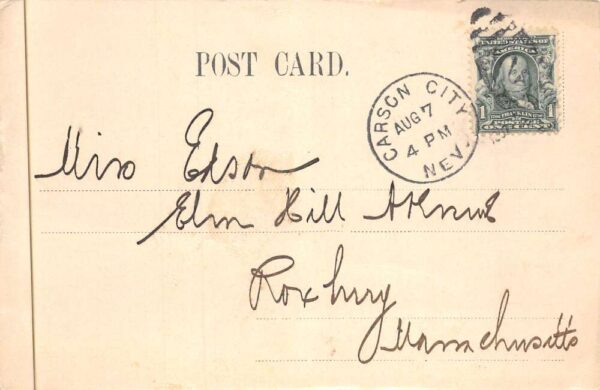 POST CARD.
CARSON CITY
AUG 7
4 PM
NEV.
UNITED STATES OF
AMERICA
1 FRANKLIN 1
POSTAGE
ONE CENT
Miss Edson
Elm Hill Avenue
Roxbury
Massachusetts